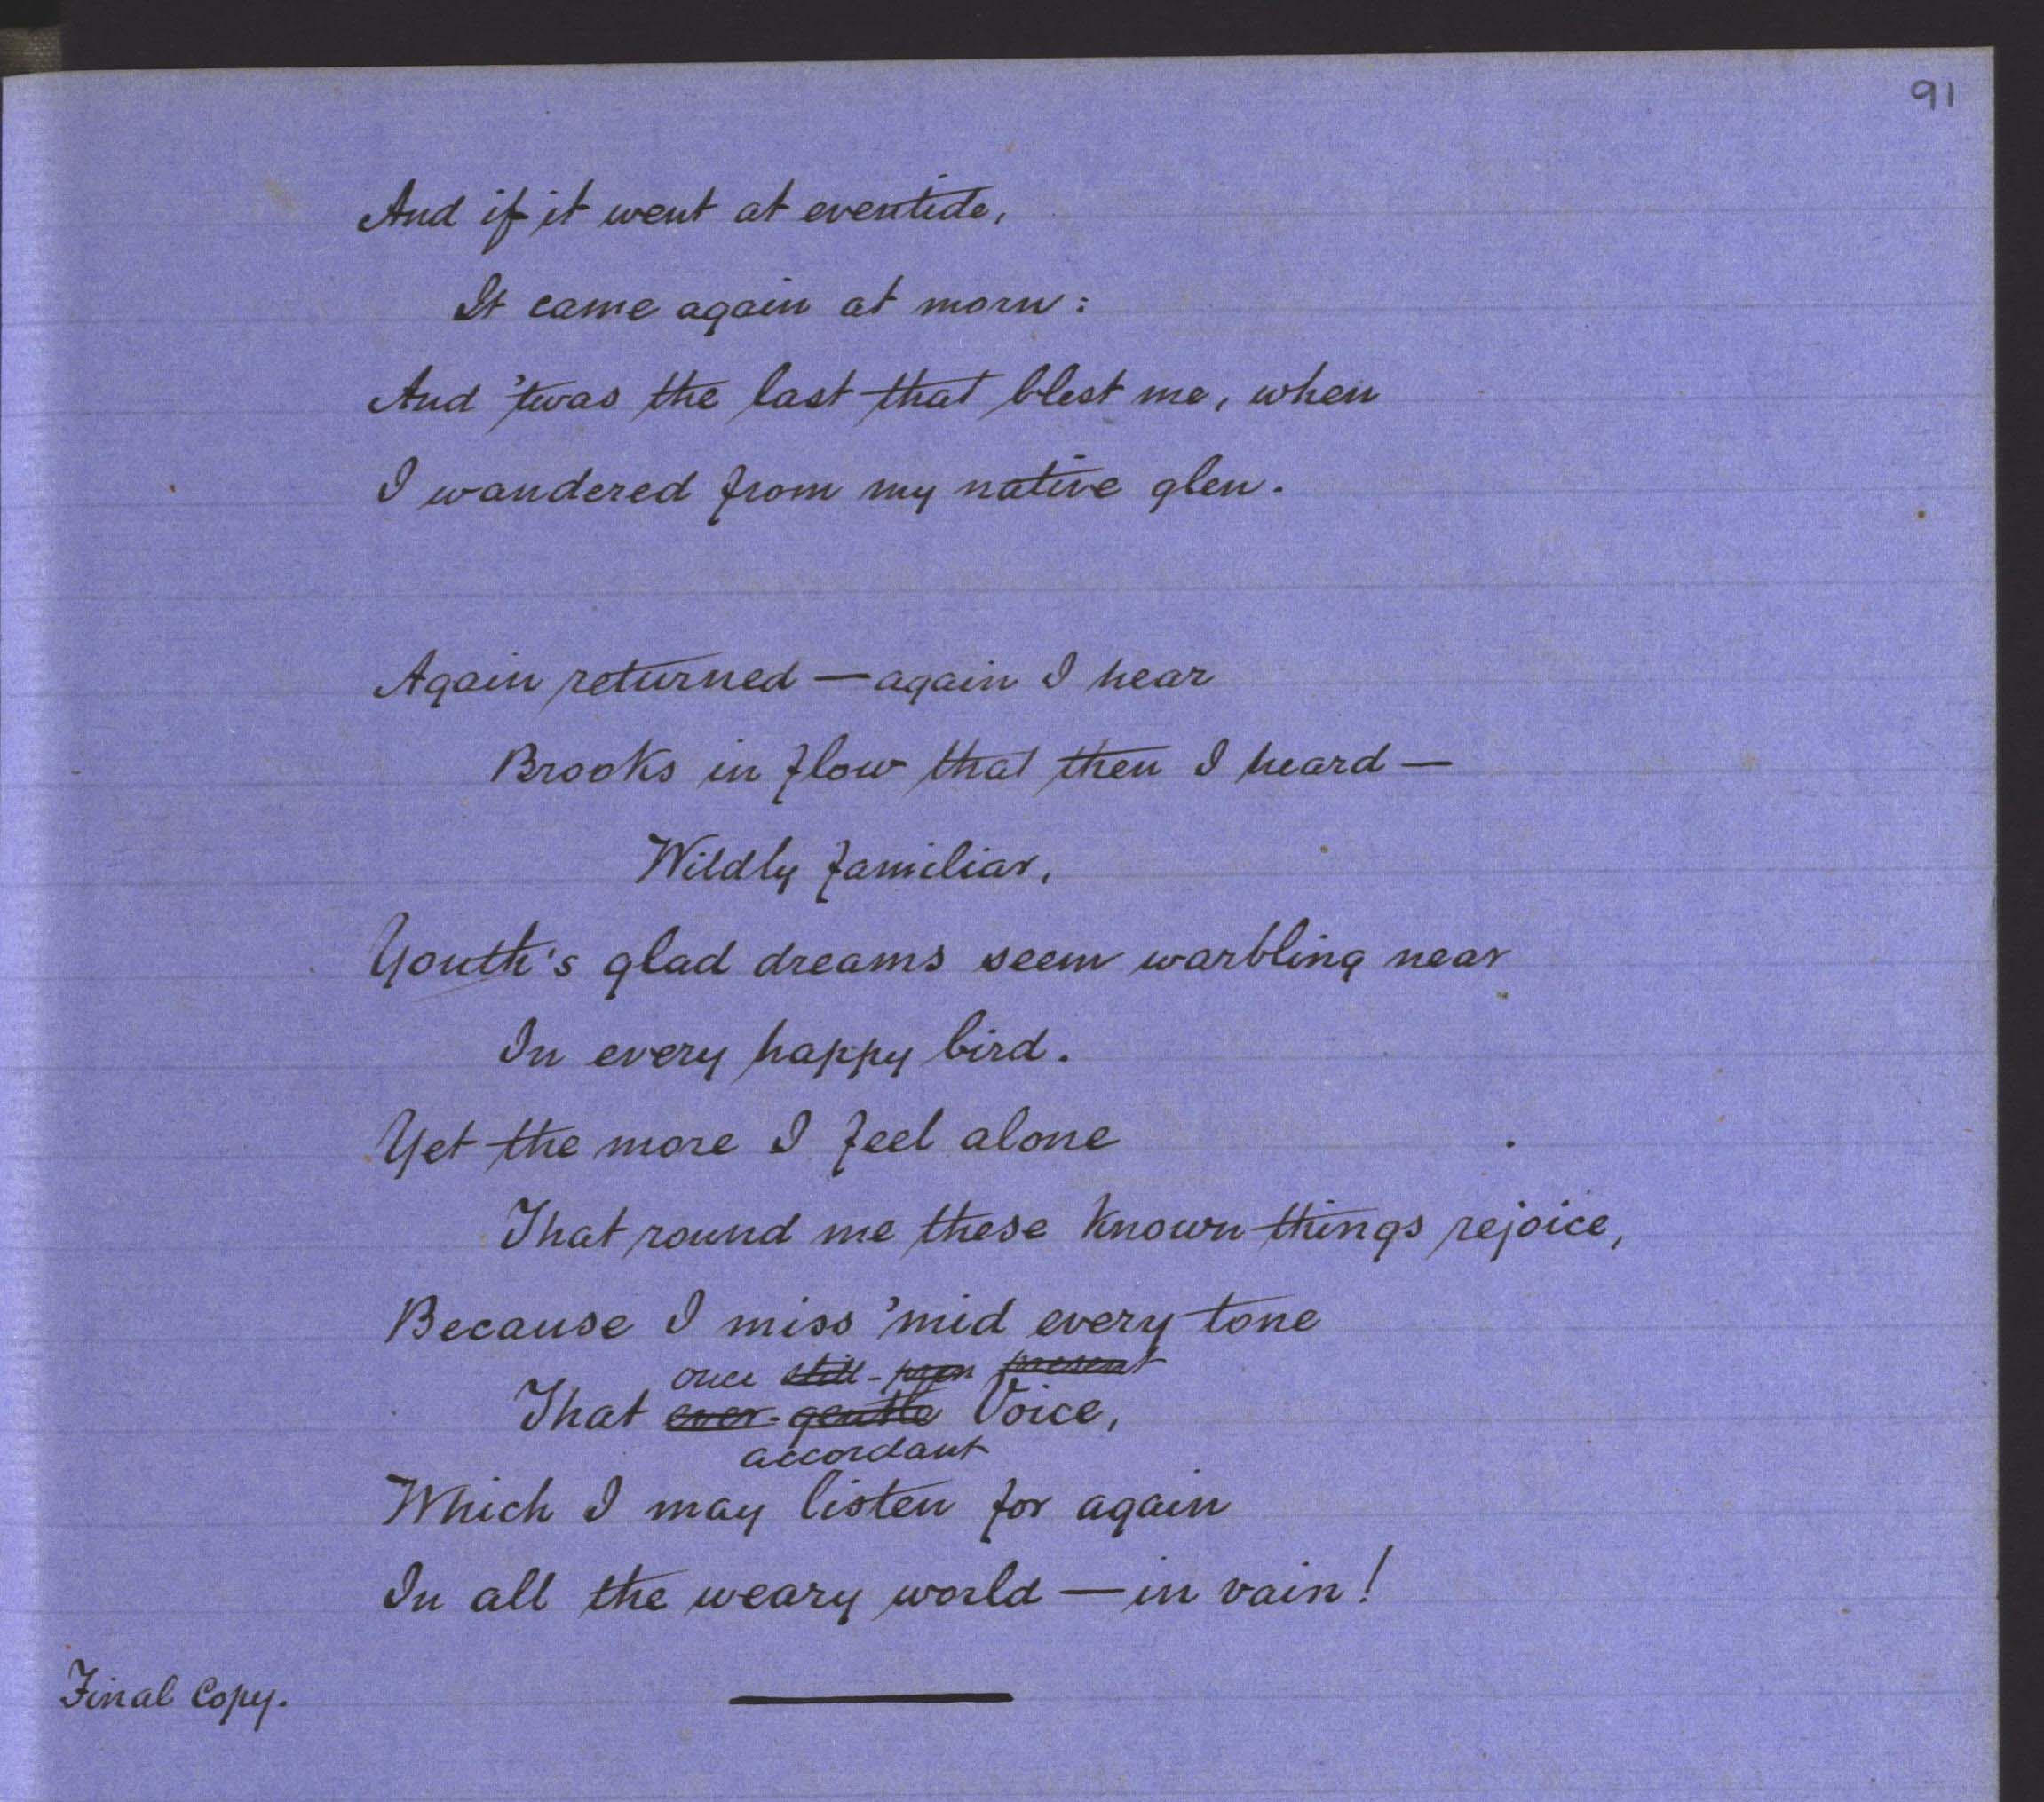 91
And if it went at eventide,
It came again at morn:
And 'twas the last that blest me, when
I wandered from my native glen.
Again returned — again I hear
Brooks in flow that then I heard —
Wildly familiar,
Youth's glad dreams seem warbling near
In every happy bird.
Yet the more I feel alone
That round me these known things rejoice,
Because I miss 'mid every tone
once still- present
That ever-gentle Voice,
accordant
Which I may listen for again
In all the weary world — in vain!
Final Copy.